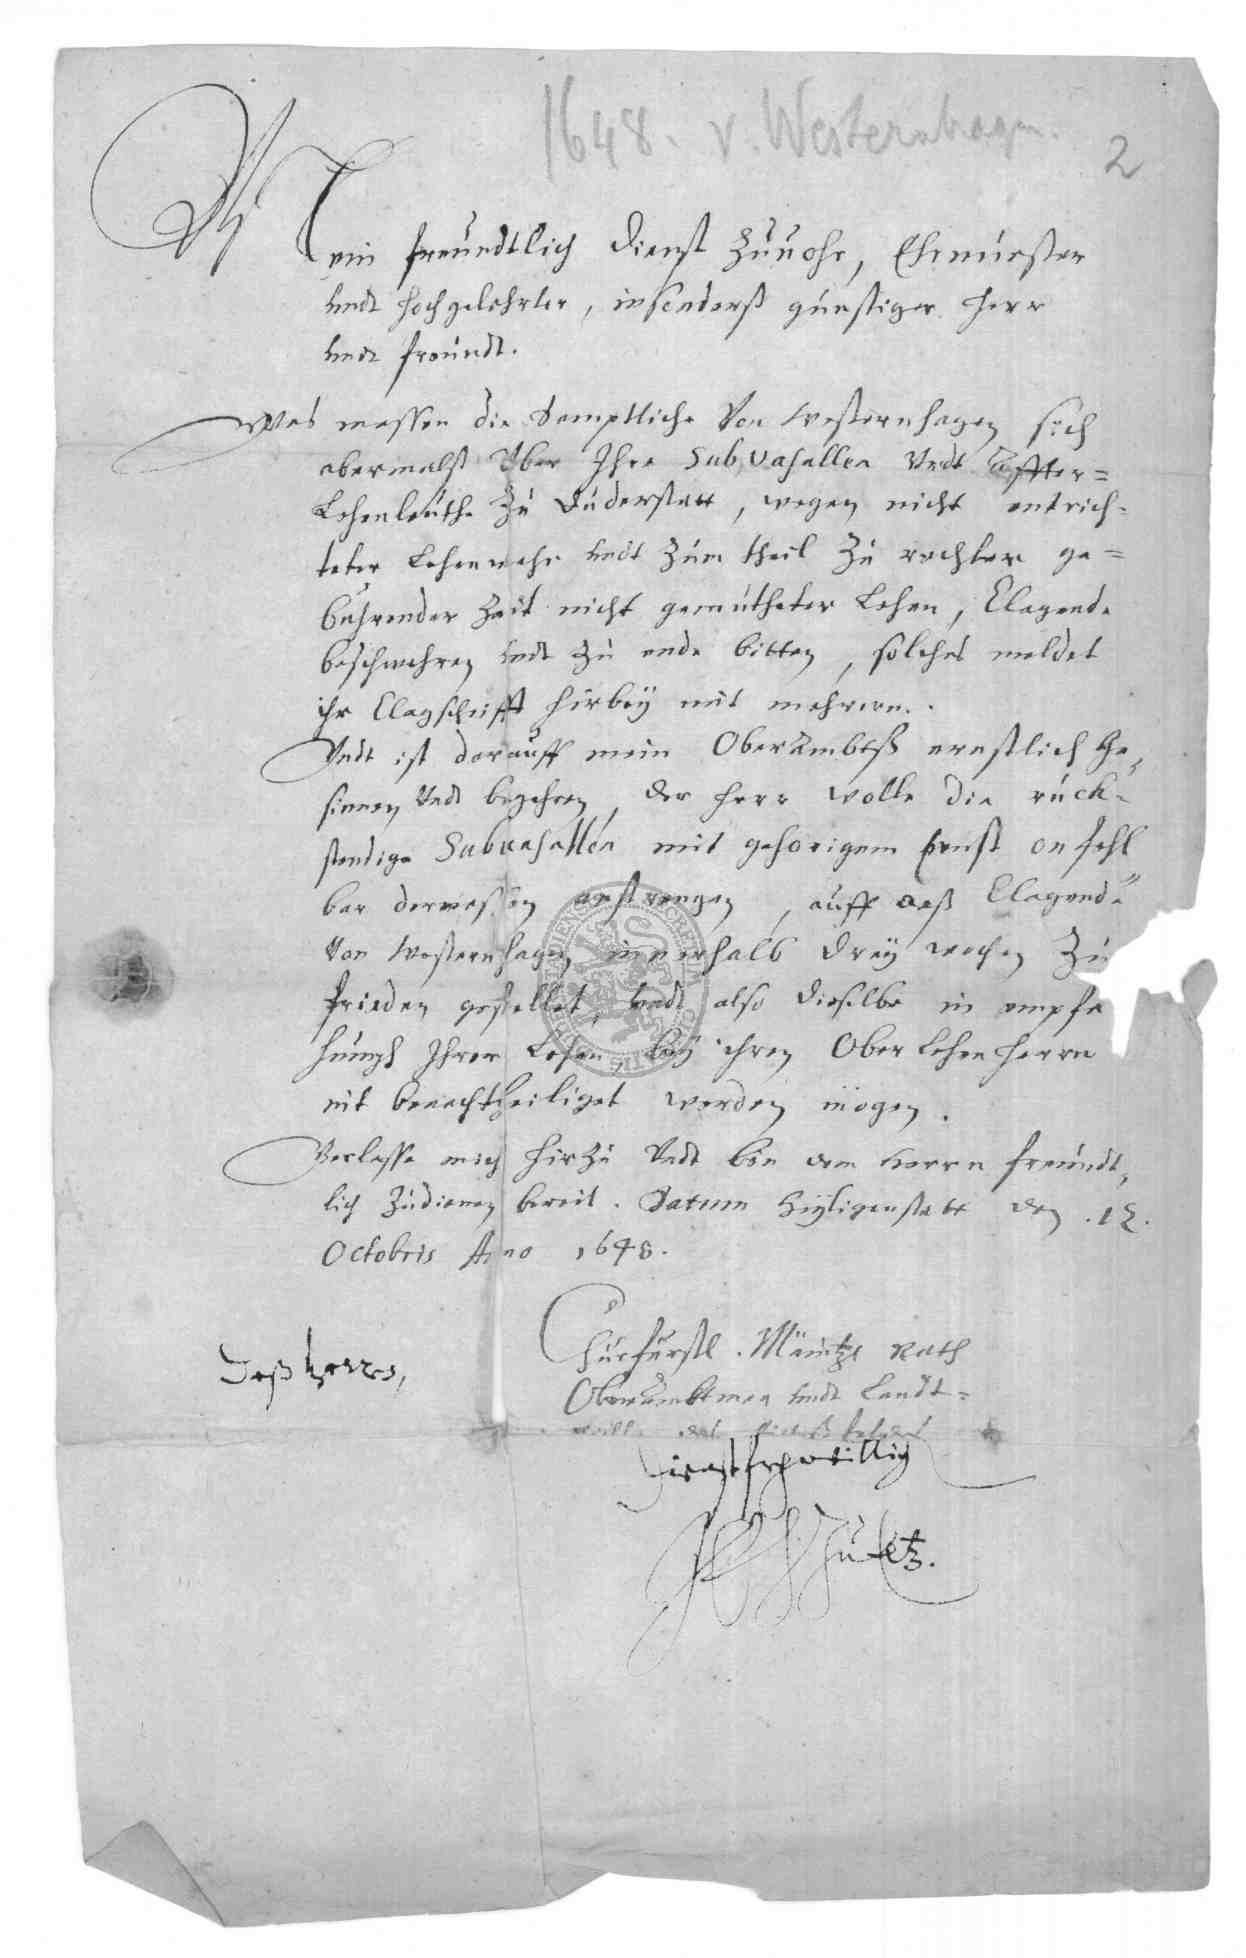 1648. v. Westernhagen.
2
Mein freundtlich dienst zuuohr, Ehrnuester
undt hochgelehrter, insonderß günstiger herr
undt freündt.
Was massen die Samptliche Von Westernhagen sich
abermalß Uber Ihre Subvasallen Undt Affter=
Lehenleüthe Zu Duderstatt, wegen nicht entrich=
teter Lehenwehr undt zum theil zu rechter ge=
buhrender Zeit nicht gemütheter Lehen, Clagende
beschwehren undt zu ende bitten, solches meldet
ihr Clagschrifft hirbeÿ mit mehrern.
Undt ist darauff mein OberAmbtß ernstlich Ge=
sinnen Undt begehren, der herr wolle die rück=
stendige Subuasallen mit gehorigem Ernst onfehl
bar dermassen anstrengen, auff daß Clagende
Von Westernhagen innerhalb dreÿ wochen Zu
frieden gestellet, undt also dieselbe in empfa
hungh Ihrer Lehen beÿ ihren Ober Lehen herrn
nit benachtheiliget werden mögen.
Verlasse mich hirzu Undt bin dem herrn freundt=
lich zudienen bereit. Datum Heÿligenstatt den .12.
Octobris Anno 1648.
Churfurstl. Mäintze Rath
OberAmbtman undt Landt=
Deß herren,
dienstfreÿwillig
Schütz.